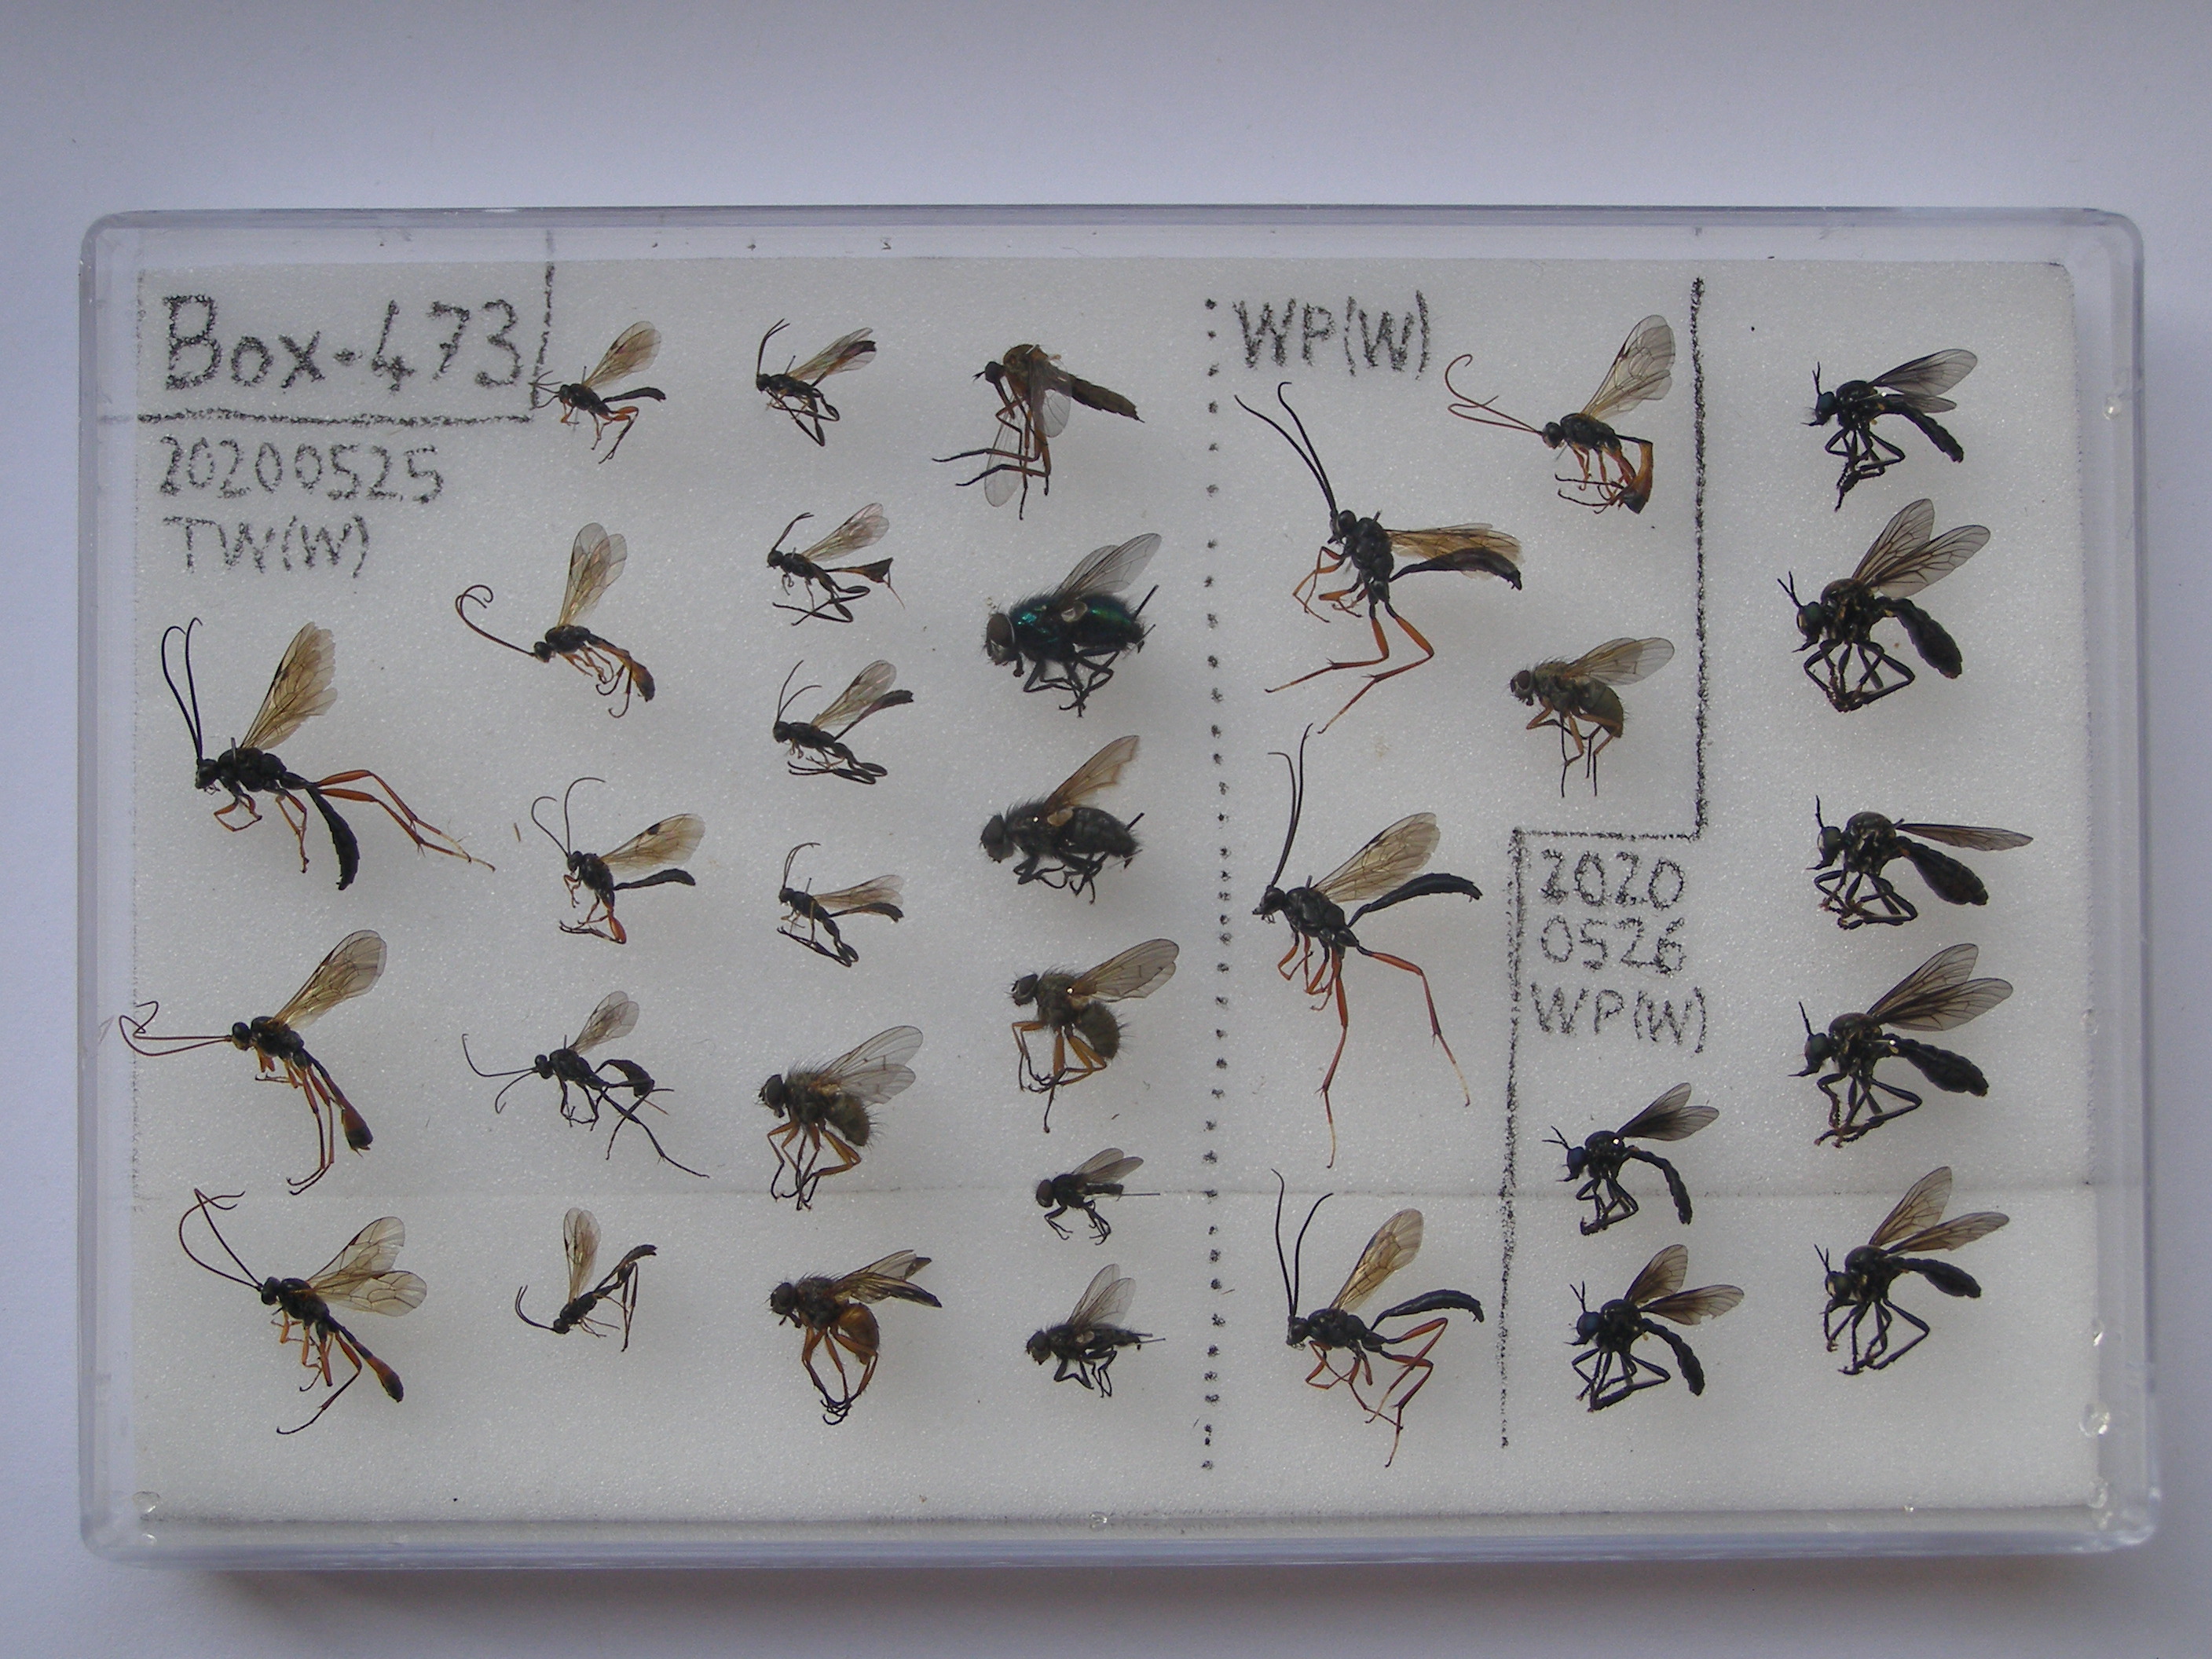 Box-473
20200525
TW(W)
WP(W)
2020
0526
WP(W)